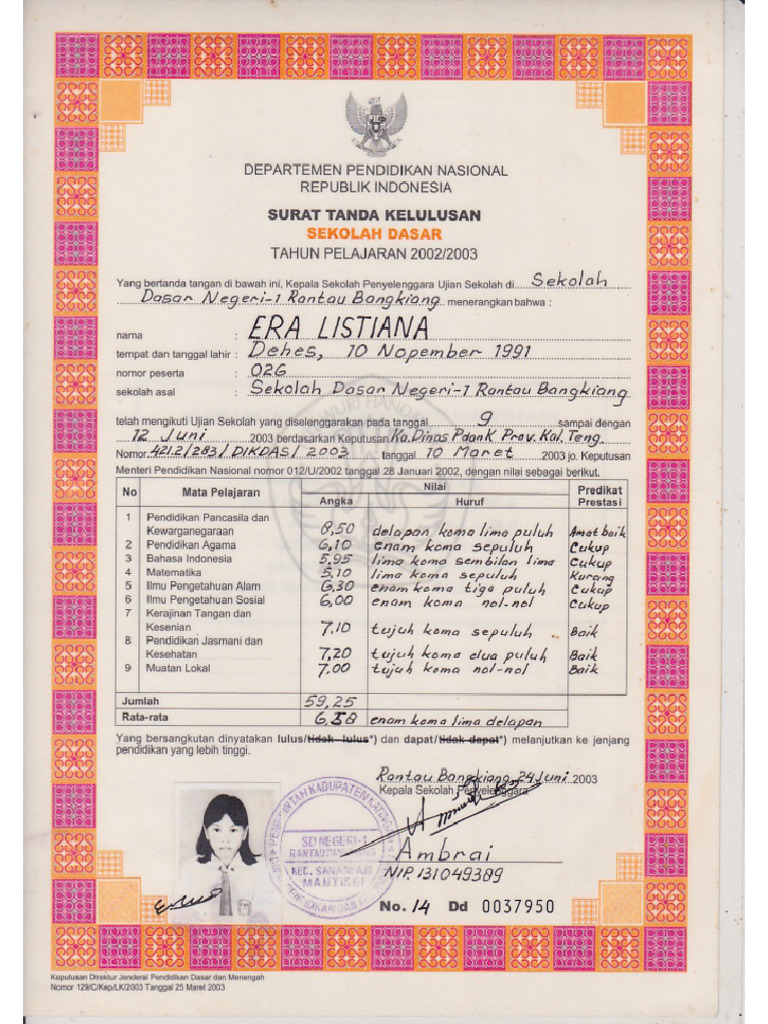 DEPARTEMEN PENDIDIKAN NASIONAL
REPUBLIK INDONESIA
SURAT TANDA KELULUSAN
SEKOLAH DASAR
TAHUN PELAJARAN 2002/2003
Yang bertanda tangan di bawah ini, Kepala Sekolah Penyelenggara Ujian Sekolah di Sekolah
Dasar Negeri-1 Rantau Bangkiang menerangkan bahwa :
nama : ERA LISTIANA
tempat dan tanggal lahir : Dehes, 10 Nopember 1991
nomor peserta : 026
sekolah asal : Sekolah Dasar Negeri-1 Rantau Bangkiang
telah mengikuti Ujian Sekolah yang diselenggarakan pada tanggal 9 sampai dengan
12 Juni 2003 berdasarkan Keputusan Ka. Dinas PdanK Prov. Kal. Teng.
Nomor 421.2/283/DIKDAS/2003 tanggal 10 Maret 2003 jo. Keputusan
Menteri Pendidikan Nasional nomor 012/U/2002 tanggal 28 Januari 2002, dengan nilai sebagai berikut.
No Mata Pelajaran Nilai Predikat Prestasi
Angka Huruf
1 Pendidikan Pancasila dan
Kewarganegaraan 8,50 delapan koma lima puluh Amat baik
2 Pendidikan Agama 6,10 enam koma sepuluh Cukup
3 Bahasa Indonesia 5,95 lima koma sembilan lima Cukup
4 Matematika 5,10 lima koma sepuluh Kurang
5 Ilmu Pengetahuan Alam 6,30 enam koma tiga puluh Cukup
6 Ilmu Pengetahuan Sosial 6,00 enam koma nol-nol Cukup
7 Kerajinan Tangan dan
Kesenian 7,10 tujuh koma sepuluh Baik
8 Pendidikan Jasmani dan
Kesehatan 7,20 tujuh koma dua puluh Baik
9 Muatan Lokal 7,00 tujuh koma nol-nol Baik
Jumlah 59,25
Rata-rata 6,58 enam koma lima delapan
Yang bersangkutan dinyatakan lulus/tidak lulus*) dan dapat/tidak dapat*) melanjutkan ke jenjang
pendidikan yang lebih tinggi.
Rantau Bangkiang, 24 Juni 2003
Kepala Sekolah Penyelenggara
SD NEGERI-1
KEC. SANAMAN
MANTIKEI
Ambrai
NIP. 131049389
No. 14 Dd 0037950
Keputusan Direktur Jenderal Pendidikan Dasar dan Menengah
Nomor 129/C/Kep/LK/2003 Tanggal 25 Maret 2003